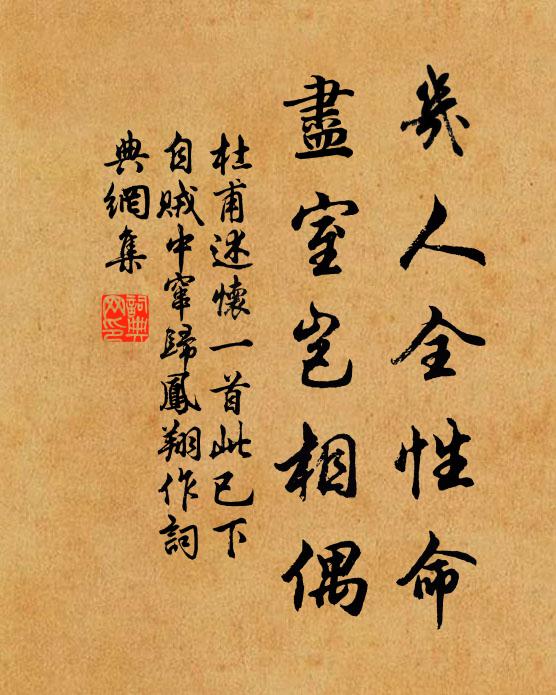 幾人全性命
盡室岂相偶
杜甫述懷一首此已下
自賊中窜歸鳳翔作詞
典網集
詞典网印